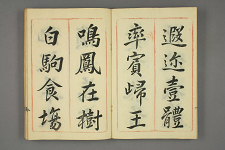 遐迩壹體
率賓歸王
鳴鳳在樹
白駒食場